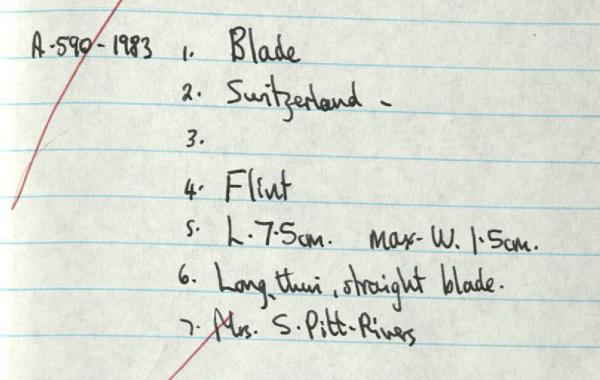 A·590-1983 1. Blade
2. Switzerland -
3.
4. Flint
5. L. 7·5cm. max-W. 1·5cm.
6. Long, thin, straight blade.
7. Mrs. S. Pitt-Rivers